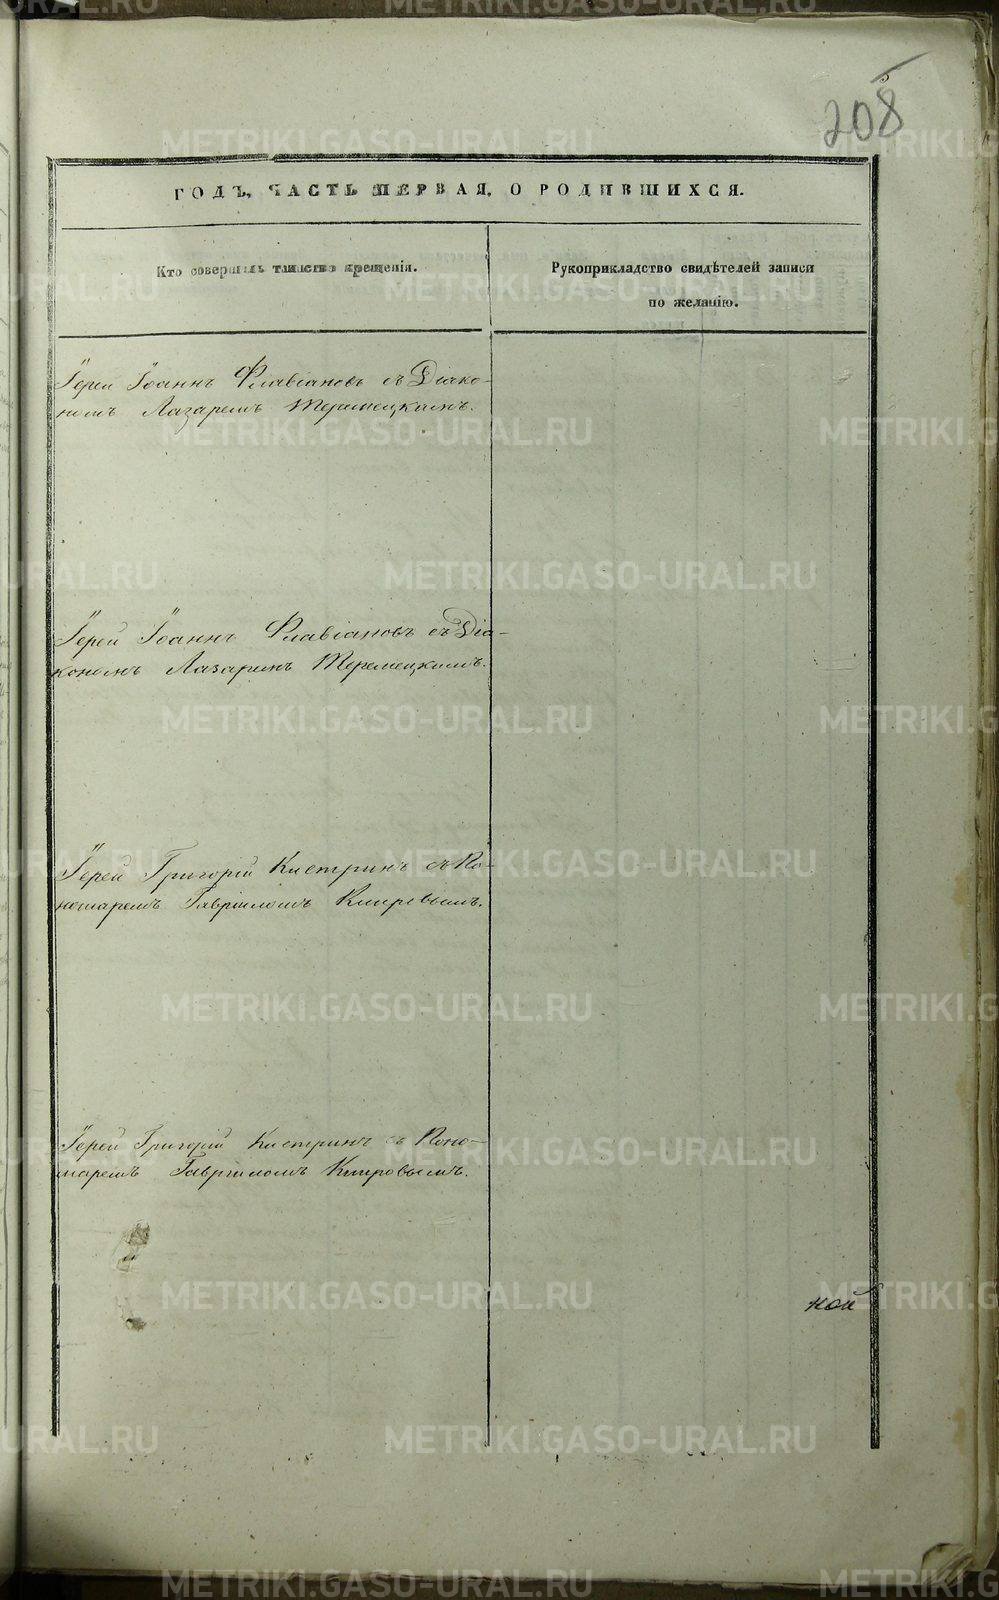 208
ГОДЪ, ЧАСТЬ ПЕРВАЯ, О РОДИВШИХСЯ.
Кто совершалъ таинство крещенія.
Рукоприкладство свидѣтелей записи
по желанію.
Іерей Іоаннъ Флавіановъ съ Діако-
номъ Лазаремъ Теремецкимъ.
Іерей Іоаннъ Флавіановъ съ Діа-
кономъ Лазаремъ Теремецкимъ.
Іерей Григорій Кистринъ съ По-
номаремъ Гавріиломъ Кпировымъ.
Іерей Григорій Кистринъ съ Поно-
маремъ Гавріиломъ Кпировымъ.
кой
METRIKI.GASO-URAL.RU